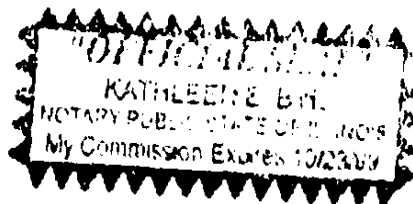 "OFFICIAL SEAL"
KATHLEEN E.
NOTARY PUBLIC STATE OF ILLINOIS
My Commission Expires 10/23/09